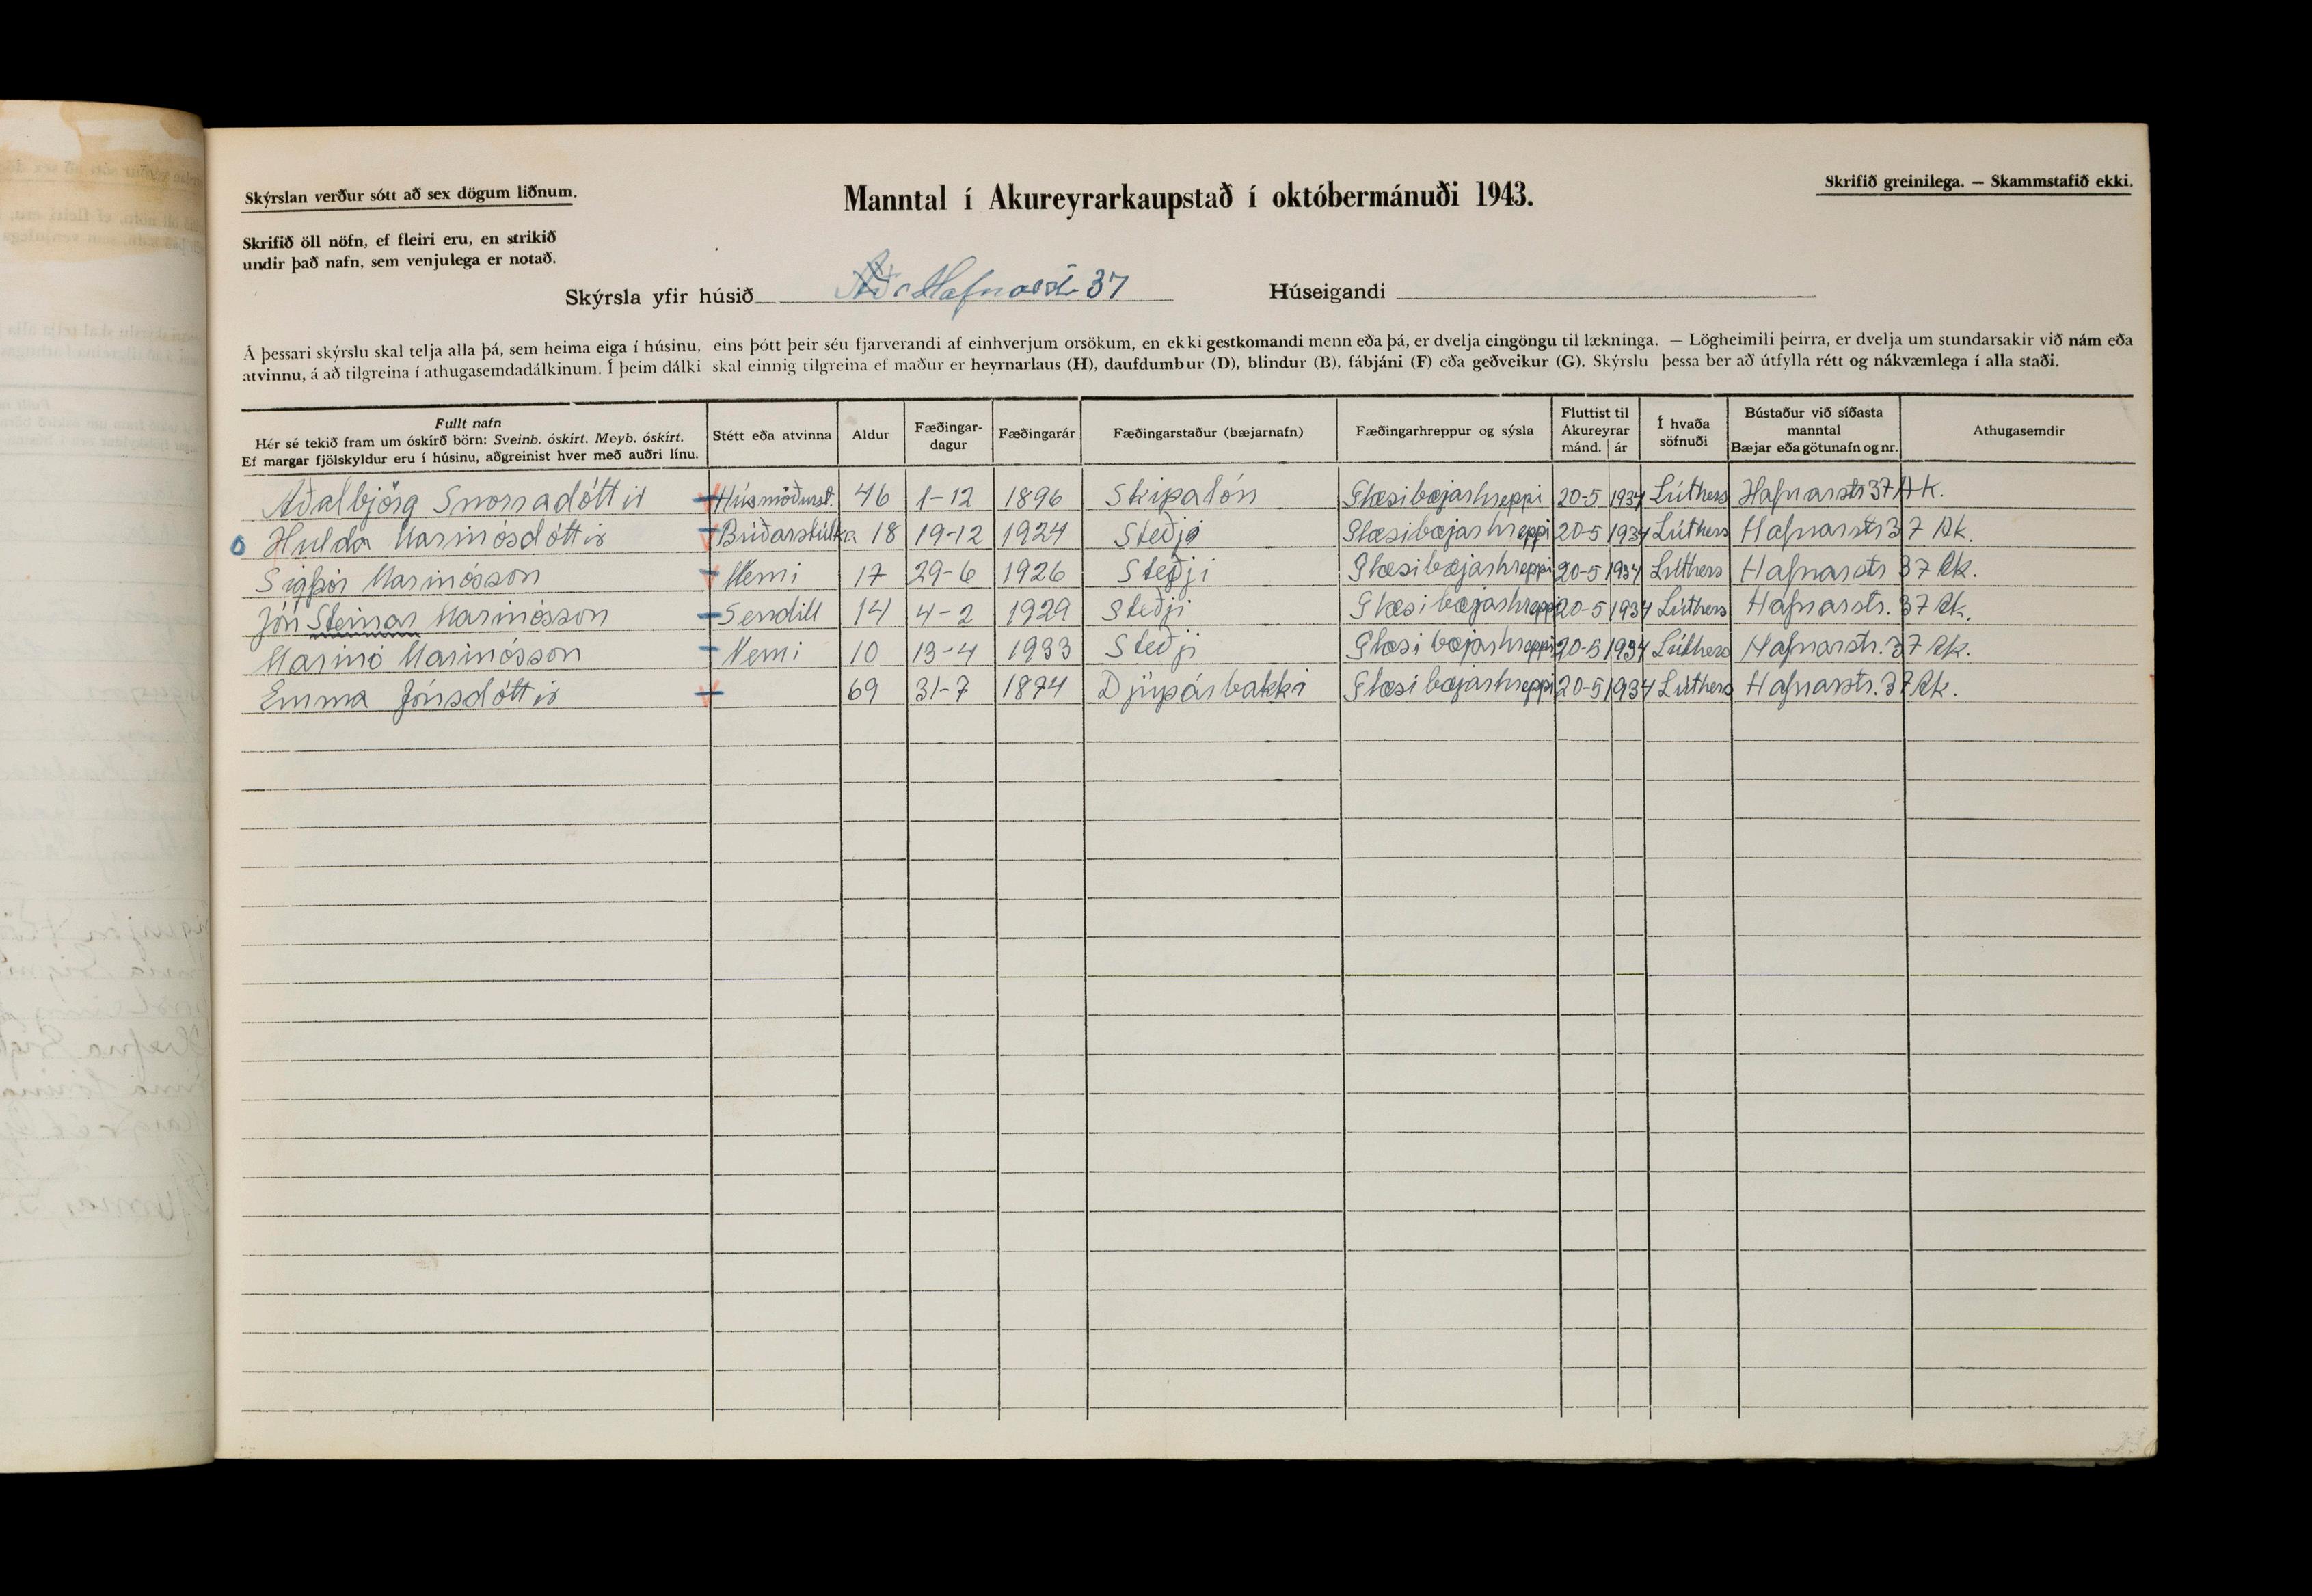 Skýrslan verður sótt að sex dögum liðnum.
Manntal í Akureyrarkaupstað í októbermánuði 1943.
Skrifið greinilega. — Skammstafið ekki.
Skrifið öll nöfn, ef fleiri eru, en strikið
undir það nafn, sem venjulega er notað.
Skýrsla yfir húsið Hafnarstr 37 Húseigandi
Á þessari skýrslu skal telja alla þá, sem heima eiga í húsinu, eins þótt þeir séu fjarverandi af einhverjum orsökum, en ekki gestkomandi menn eða þá, er dvelja eingöngu til lækninga. — Lögheimili þeirra, er dvelja um stundarsakir við nám eða
atvinnu, á að tilgreina í athugasemdadálkinum. Í þeim dálki skal einnig tilgreina ef maður er heyrnarlaus (H), daufdumbur (D), blindur (B), fábjáni (F) eða geðveikur (G). Skýrslu þessa ber að útfylla rétt og nákvæmlega í alla staði.
Fullt nafn
Hér sé tekið fram um óskírð börn: Sveinb. óskírt. Meyb. óskírt.
Ef margar fjölskyldur eru í húsinu, aðgreinist hver með auðri línu.
Stétt eða atvinna
Aldur
Fæðingar-
dagur
Fæðingarár
Fæðingarstaður (bæjarnafn)
Fæðingarhreppur og sýsla
Fluttist til
Akureyrar
mánd. ár
Í hvaða
söfnuði
Bústaður við síðasta
manntal
Bæjar eða götunafn og nr.
Athugasemdir
Aðalbjörg Snorradóttir Húsmóðurst. 46 1-12 1896 Skipalón Glæsibæjarhreppi 20-5 1934 Lúthers Hafnarstr 37 Ak.
Hulda Marinósdóttir Búðarstúlka 18 19-12 1924 Steðji Glæsibæjarhreppi 20-5 1934 Lúthers Hafnarstr 37 Ak.
Sigþór Marinósson Nemi 17 29-6 1926 Steðji Glæsibæjarhreppi 20-5 1934 Lúthers Hafnarstr 37 Ak.
Jón Steinar Marinósson Sendill 14 4-2 1929 Steðji Glæsibæjarhreppi 20-5 1934 Lúthers Hafnarstr. 37 Ak.
Marinó Marinósson Nemi 10 13-4 1933 Steðji Glæsibæjarhreppi 20-5 1934 Lúthers Hafnarstr. 37 Ak.
Emma Jónsdóttir 69 31-7 1874 Djúpárbakki Glæsibæjarhreppi 20-5 1934 Lúthers Hafnarstr. 37 Ak.